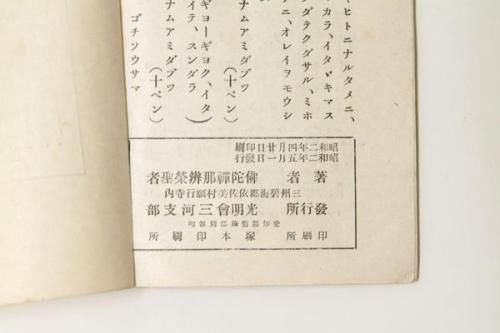 ヒトニナルタメニ、
カラ、イタヾキマス
テクダサル、ミホ
ニ、オレイヲモウシ
ナムアミダブツ
(十ペン)
ギヨーギヨク、イタ
イテ、スンダラ
ナムアミダブツ
(十ペン)
ゴチソウサマ
昭和二年四月廿日印刷
昭和二年五月一日發行
著者 佛陀禪那辨榮聖者
三州碧海郡依佐美村願行寺内
發行所 光明會三河支部
印刷所 塚本印刷所